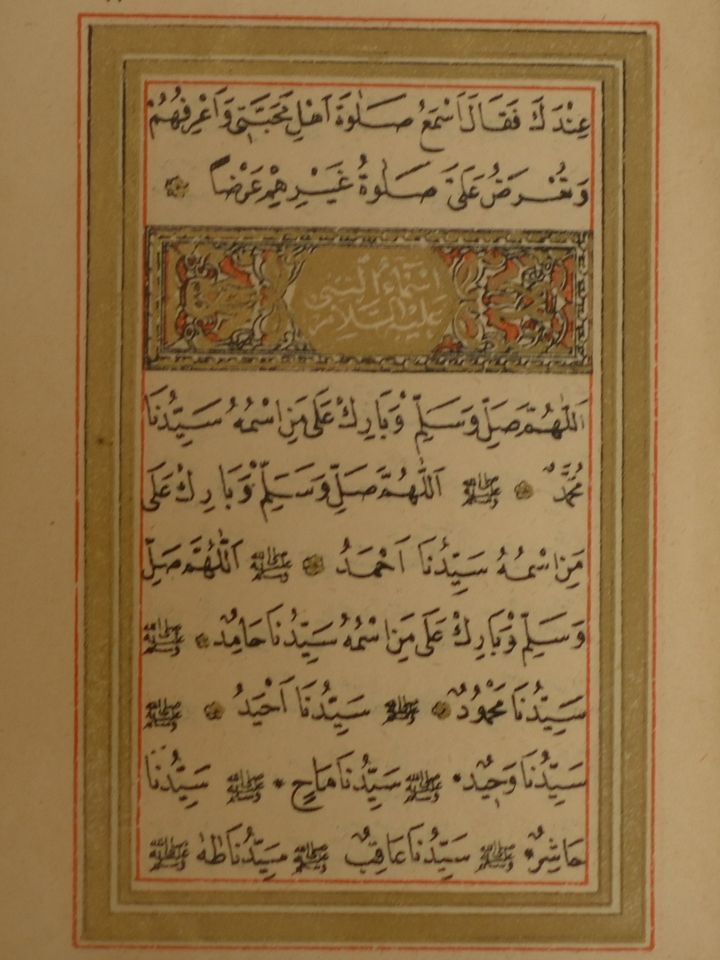 عِنْدَكَ فَقَالَ اَسْمَعُ صَلٰوةَ اَهْلِ مَحَبَّتِى وَاَعْرِفُهُمْ
وَتُعْرَضُ عَلَىَّ صَلٰوةُ غَيْرِهِمْ عَرْضًا
اَسْمَاءُ النَّبِى
عَلَيْهِ السَّلَامْ
اَللّٰهُمَّ صَلِّ وَسَلِّمْ وَبَارِكْ عَلَى مَنِ اسْمُهُ سَيِّدُنَا
مُحَمَّدٌ ﷺ اَللّٰهُمَّ صَلِّ وَسَلِّمْ وَبَارِكْ عَلَى
مَنِ اسْمُهُ سَيِّدُنَا اَحْمَدُ ﷺ اَللّٰهُمَّ صَلِّ
وَسَلِّمْ وَبَارِكْ عَلَى مَنِ اسْمُهُ سَيِّدُنَا حَامِدٌ ﷺ
سَيِّدُنَا مَحْمُودٌ ﷺ سَيِّدُنَا اَحْيَدُ ﷺ
سَيِّدُنَا وَحِيدٌ ﷺ سَيِّدُنَا مَاحٍ ﷺ سَيِّدُنَا
حَاشِرٌ ﷺ سَيِّدُنَا عَاقِبٌ ﷺ سَيِّدُنَا طٰهٰ ﷺ